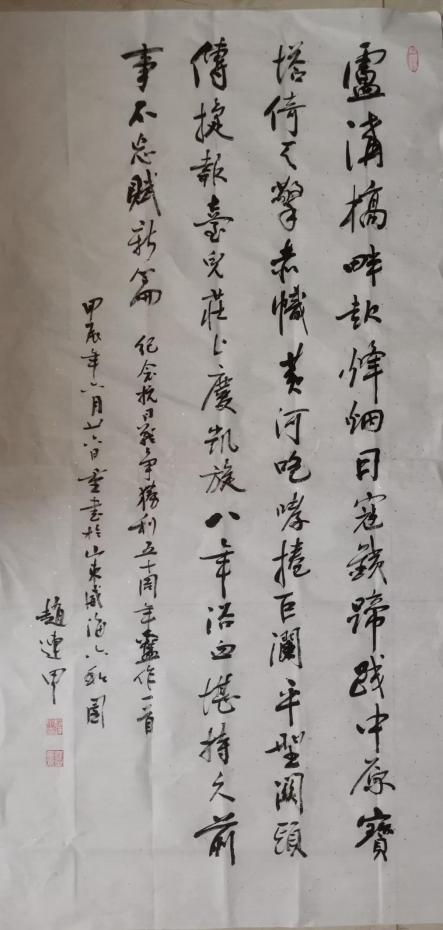 盧溝橋畔起烽烟日寇鐵蹄踐中原寶
塔倚天擎赤幟黄河咆哮捲巨瀾平型關頭
傳捷報臺兒莊上慶凱旋八年浴血堪持久前
事不忘賦新篇 紀念抗日戰争勝利五十周年舊作一首
甲辰年六月廿六日重書於山東威海六和園
趙連甲